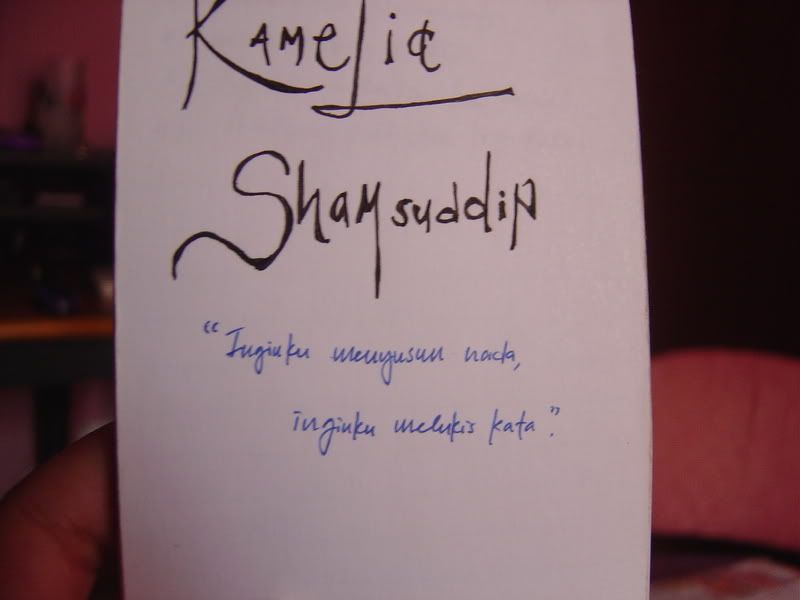 Kamelia
Shamsuddin
“Inginku menyusun nada,
inginku melukis kata”.